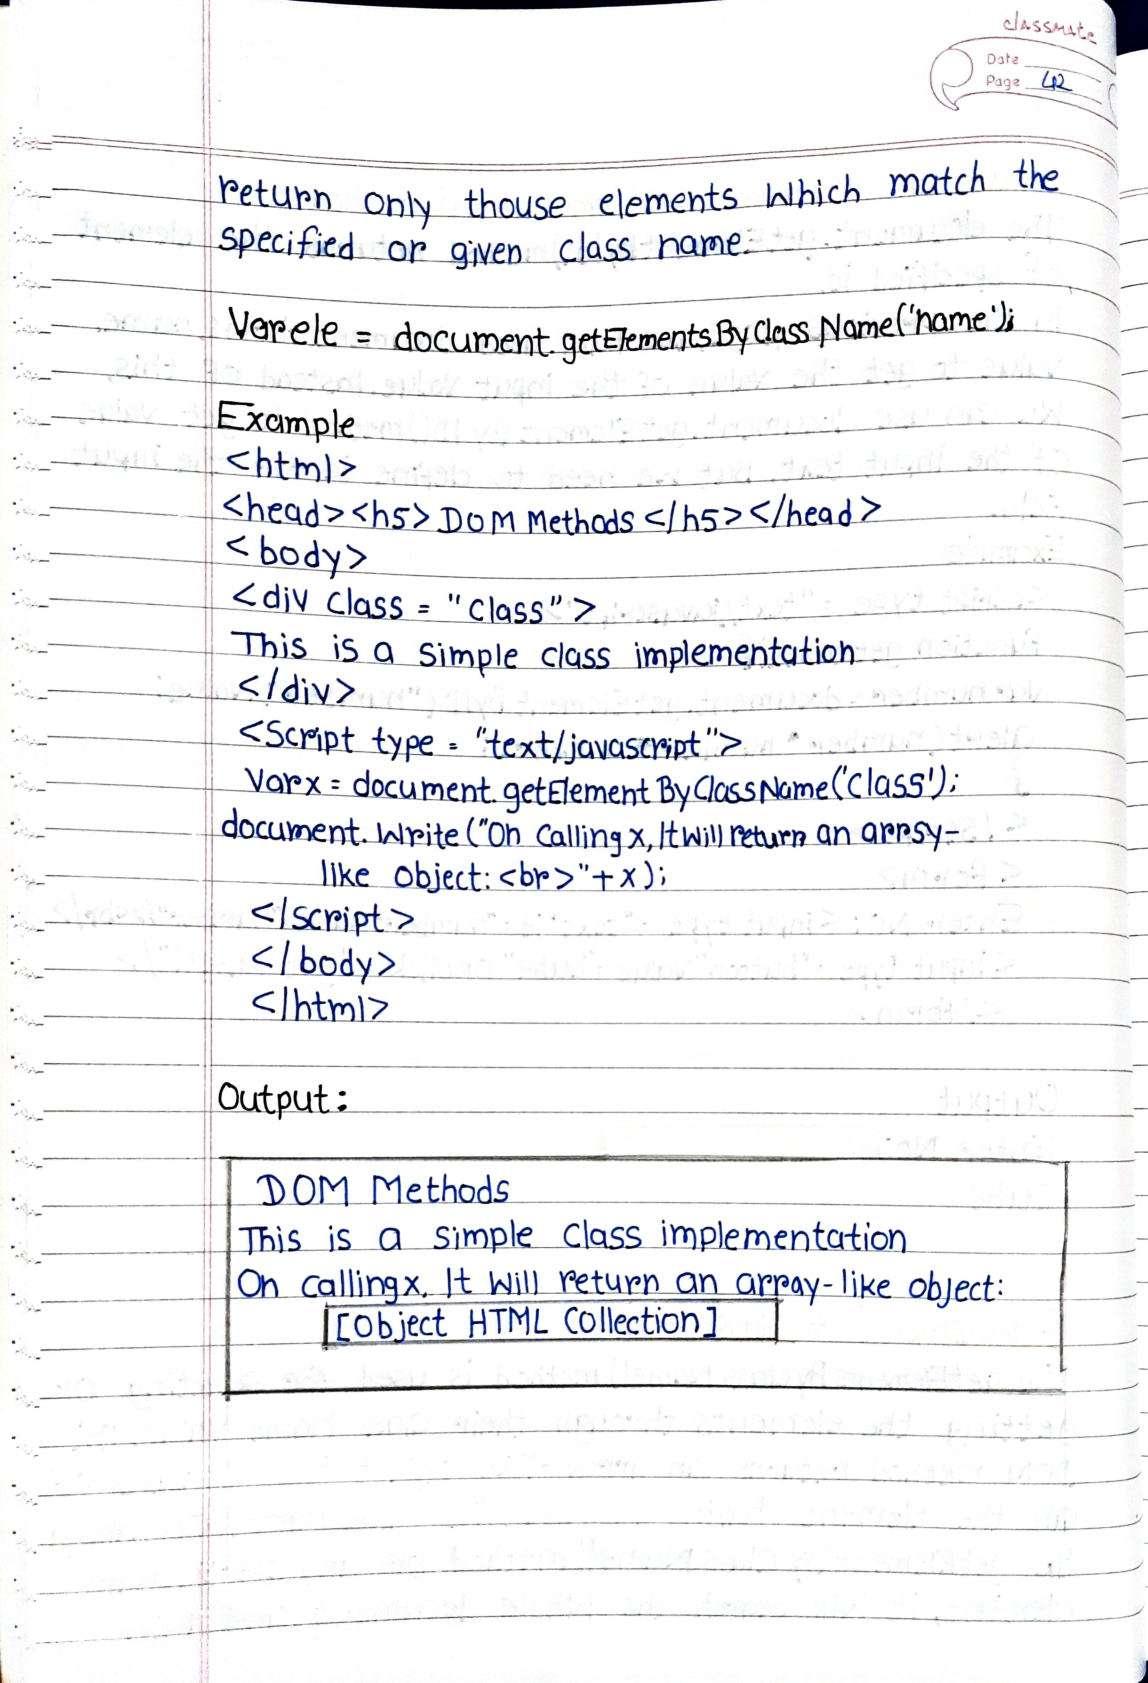 classmate
Date
Page 42
return only thouse elements which match the
specified or given class name.
Var ele = document.getElementsByClassName('name');
Example
<html>
<head><h5>DOM Methods</h5></head>
<body>
<div class = "class">
This is a simple class implementation
</div>
<Script type = "text/javascript">
Var x = document.getElementByClassName('class');
document.Write("On calling x, It will return an arrsy-
like object:<br>"+x);
</script>
</body>
</html>
Output:
DOM Methods
This is a simple class implementation
On calling x, It will return an array-like object:
[object HTML Collection]